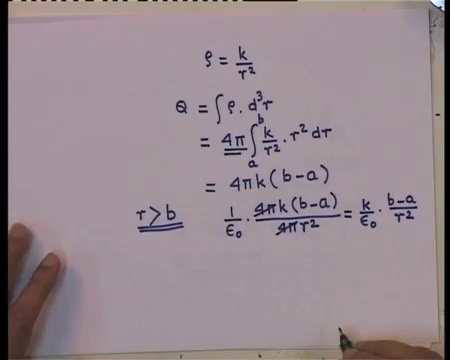 ρ = k/r²
Q = ∫ρ. d³r
= 4π ∫ₐᵇ k/r² · r² dr
= 4πk(b-a)
r>b 1/ε₀ · 4πk(b-a)/4πr² = k/ε₀ · b-a/r²